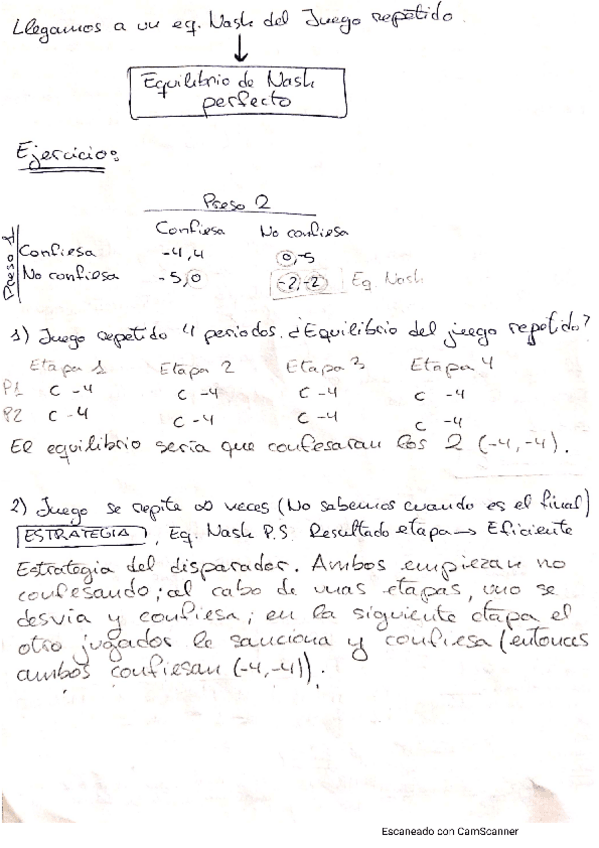 Llegamos a un eq. Nash del Juego repetido.
Equilibrio de Nash
perfecto
Ejercicio:
Preso 2
Confiesa No confiesa
Preso 1
Confiesa -4,4 0,-5
No confiesa -5,0 -2,-2 Eq. Nash
1) Juego repetido 4 periodos. ¿Equilibrio del juego repetido?
Etapa 1 Etapa 2 Etapa 3 Etapa 4
P1 C -4 C -4 C -4 C -4
P2 C -4 C -4 C -4 C -4
El equilibrio sería que confesaran los 2 (-4,-4).
2) Juego se repite ∞ veces (No sabemos cuando es el final)
ESTRATEGIA, Eq. Nash P.S. Resultado etapa → Eficiente
Estrategia del disparador. Ambos empiezan no
confesando; al cabo de unas etapas, uno se
desvía y confiesa; en la siguiente etapa el
otro jugador le sanciona y confiesa (entonces
ambos confiesan (-4,-4)).
Escaneado con CamScanner